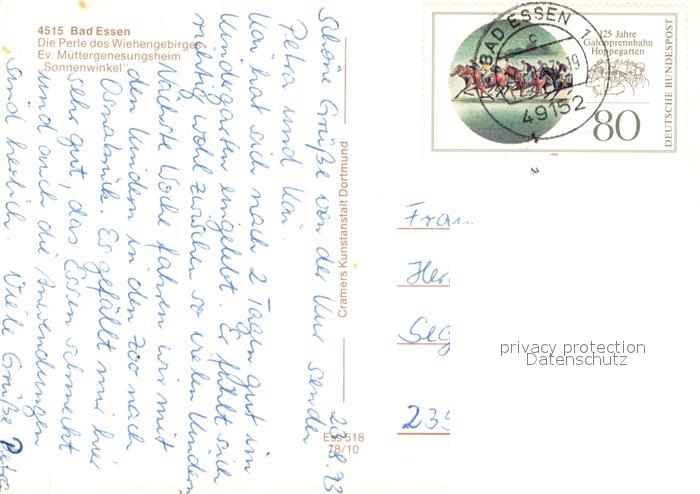 4515 Bad Essen
Die Perle des Wiehengebirges
Ev. Müttergenesungsheim
„Sonnenwinkel"
22.8.93
Schöne Grüße von der Kur senden
Petra und Kai.
Kai hat sich nach 2 Tagen gut im
Kindergarten eingelebt. Er fühlt sich
richtig wohl zwischen so vielen Kindern
Nächste Woche fahren wir mit
den Kindern in den Zoo nach
Osnabrück. Es gefällt mir hier
sehr gut, das Essen schmeckt
und auch die Anwendungen
sind herrlich. Viele Grüße Petra
Cramers Kunstanstalt Dortmund
Ess 518
78/10
BAD ESSEN 1
49152
125 Jahre
Galopprennbahn
Hoppegarten
80
DEUTSCHE BUNDESPOST
1993
Frau
Her
Seg
235
privacy protection
Datenschutz